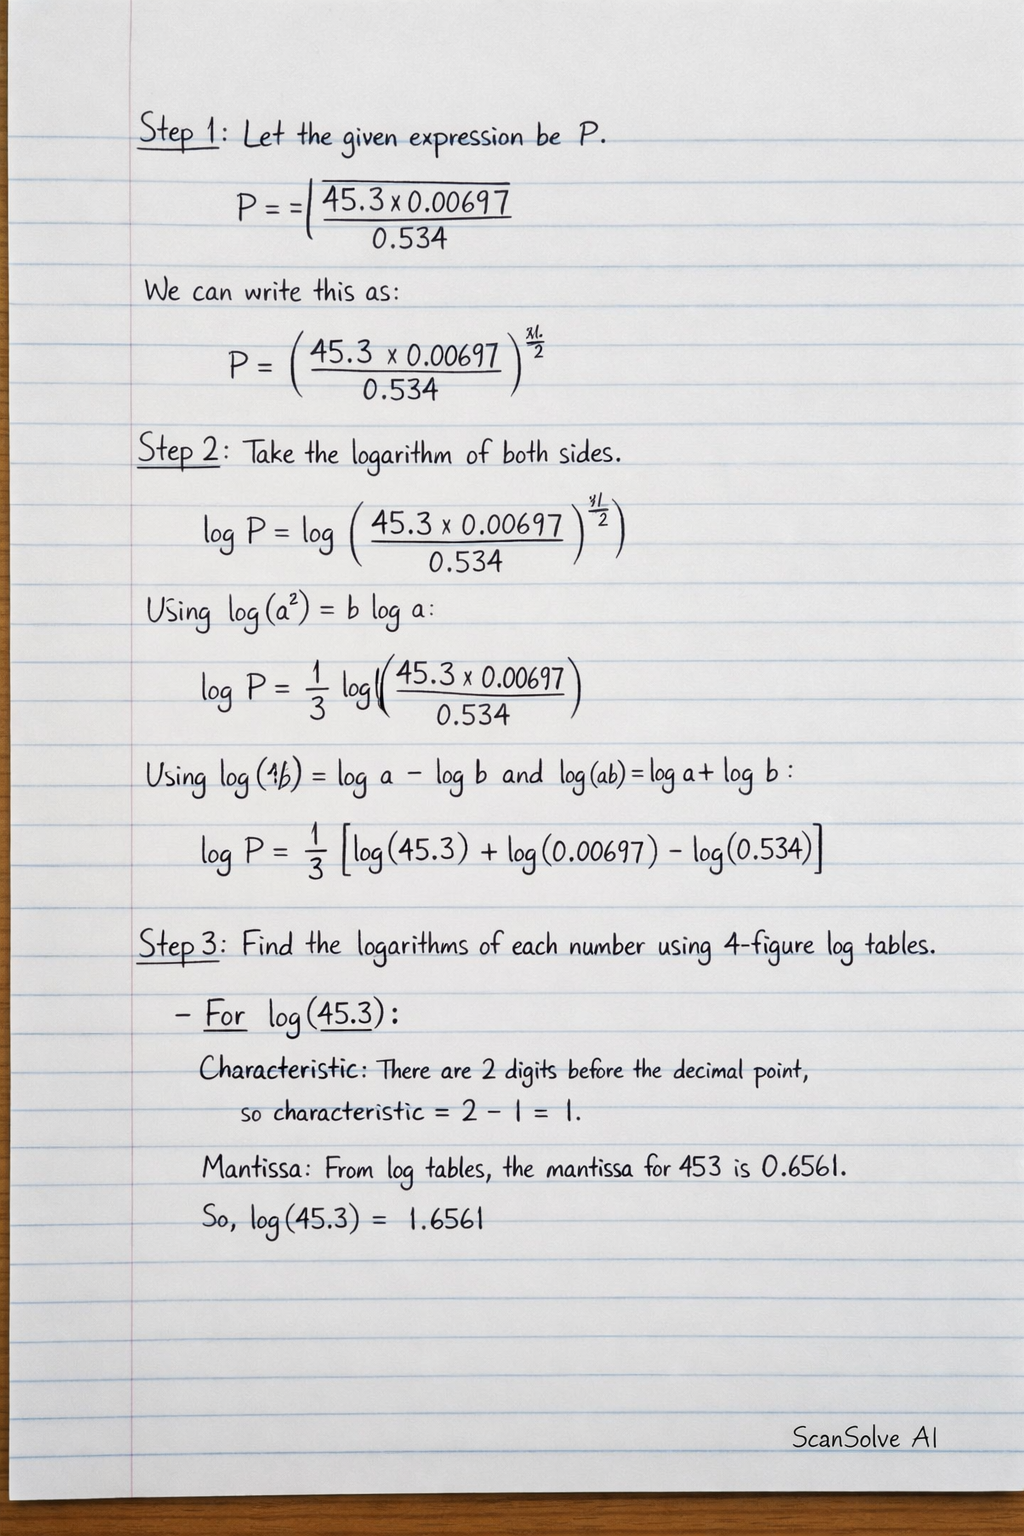 Step 1: Let the given expression be P.
P = = √(45.3 x 0.00697 / 0.534)
We can write this as:
P = (45.3 x 0.00697 / 0.534)^(/2)
Step 2: Take the logarithm of both sides.
log P = log (45.3 x 0.00697 / 0.534)^(/2))
Using log(a²) = b log a:
log P = 1/3 log((45.3 x 0.00697 / 0.534)
Using log() = log a - log b and log(ab) = log a + log b :
log P = 1/3 [log(45.3) + log(0.00697) - log(0.534)]
Step 3: Find the logarithms of each number using 4-figure log tables.
- For log(45.3):
Characteristic: There are 2 digits before the decimal point,
so characteristic = 2 - 1 = 1.
Mantissa: From log tables, the mantissa for 453 is 0.6561.
So, log(45.3) = 1.6561
ScanSolve AI